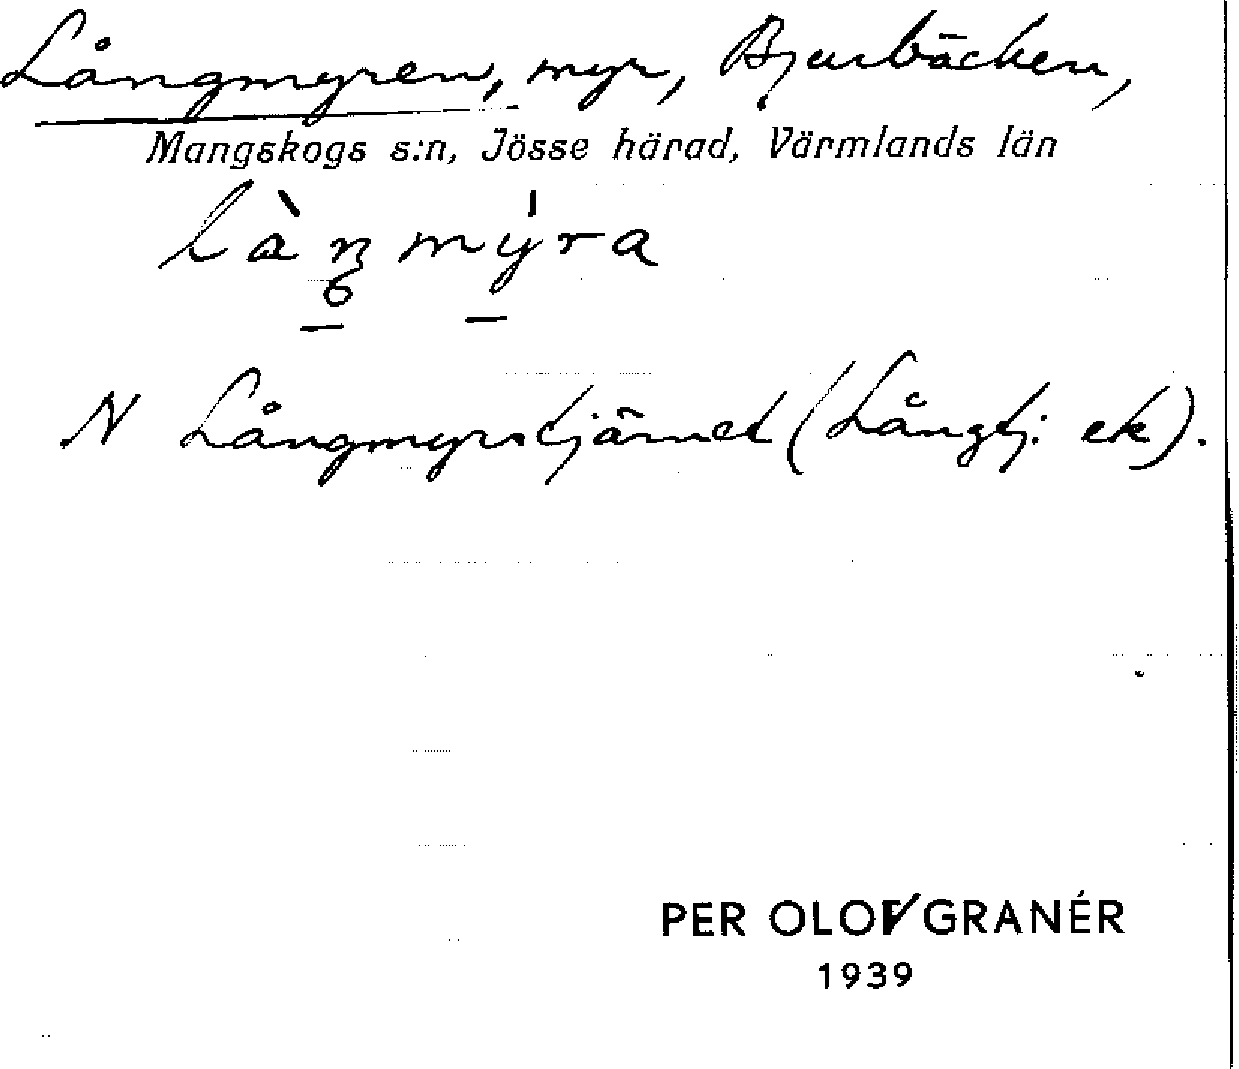 Långmyren, myr, Bjurbäcken,
Mangskogs s:n, Jösse härad, Värmlands län
làŋmýra
N Långmyrstjärnet (Långtj: ek).
PER OLOV GRANÉR
1939